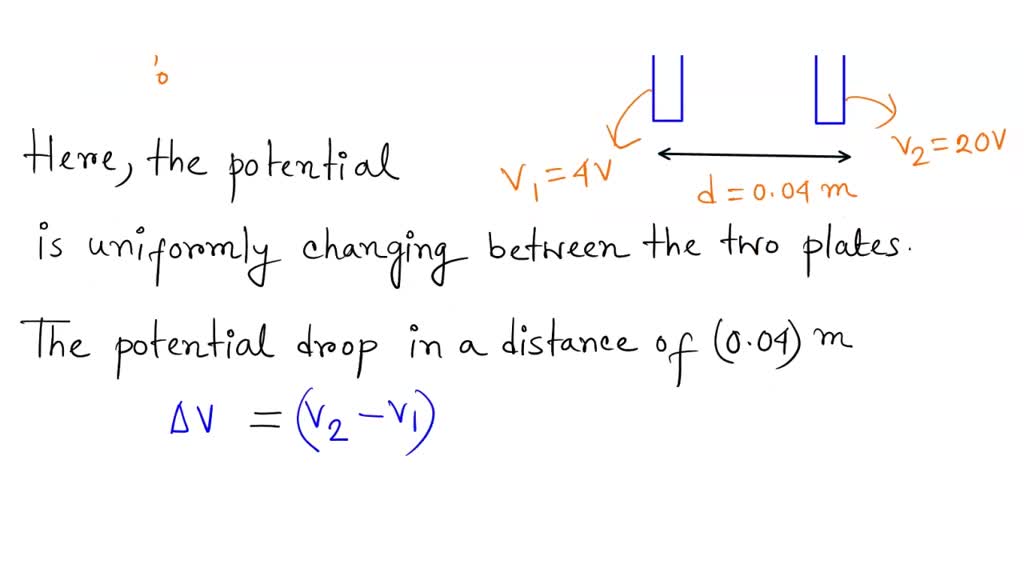 Here, the potential
V₁ = 4V
d = 0.04 m
V₂ = 20V
is uniformly changing between the two plates.
The potential drop in a distance of (0.04) m
ΔV = (V₂ - V₁)